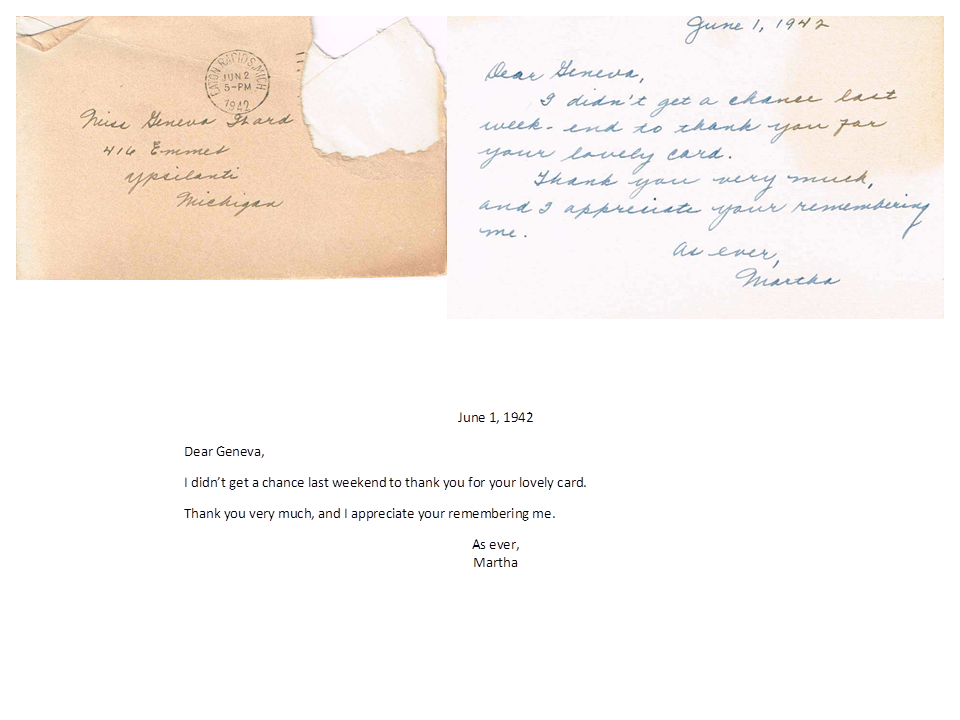 EATON RAPIDS, MICH
JUN 2
5-PM
1942
Miss Geneva
416 Emmet
Ypsilanti
Michigan
June 1, 1942
Dear Geneva,
I didn't get a chance last
week-end to thank you for
your lovely card.
Thank you very much,
and I appreciate your remembering
me.
As ever,
Martha
June 1, 1942
Dear Geneva,
I didn’t get a chance last weekend to thank you for your lovely card.
Thank you very much, and I appreciate your remembering me.
As ever,
Martha